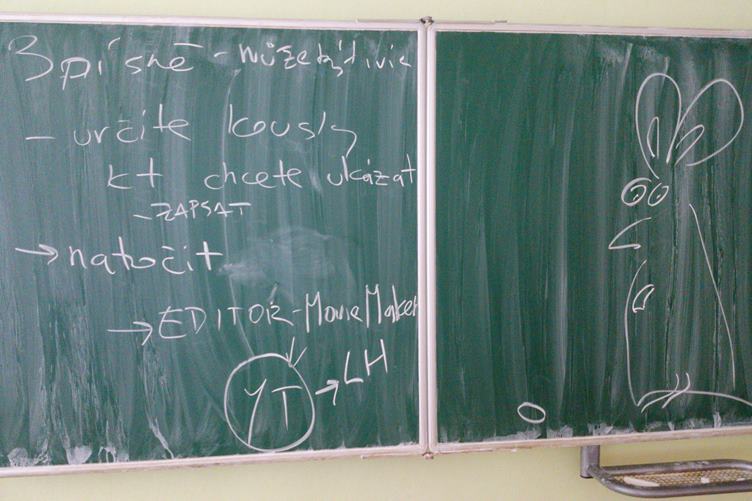 3 písně - můžete být i více
- určitě kousky
kt chcete ukázat
- ZAPSAT
→ natočit
→ EDITOR - Movie Maker
YT → LH